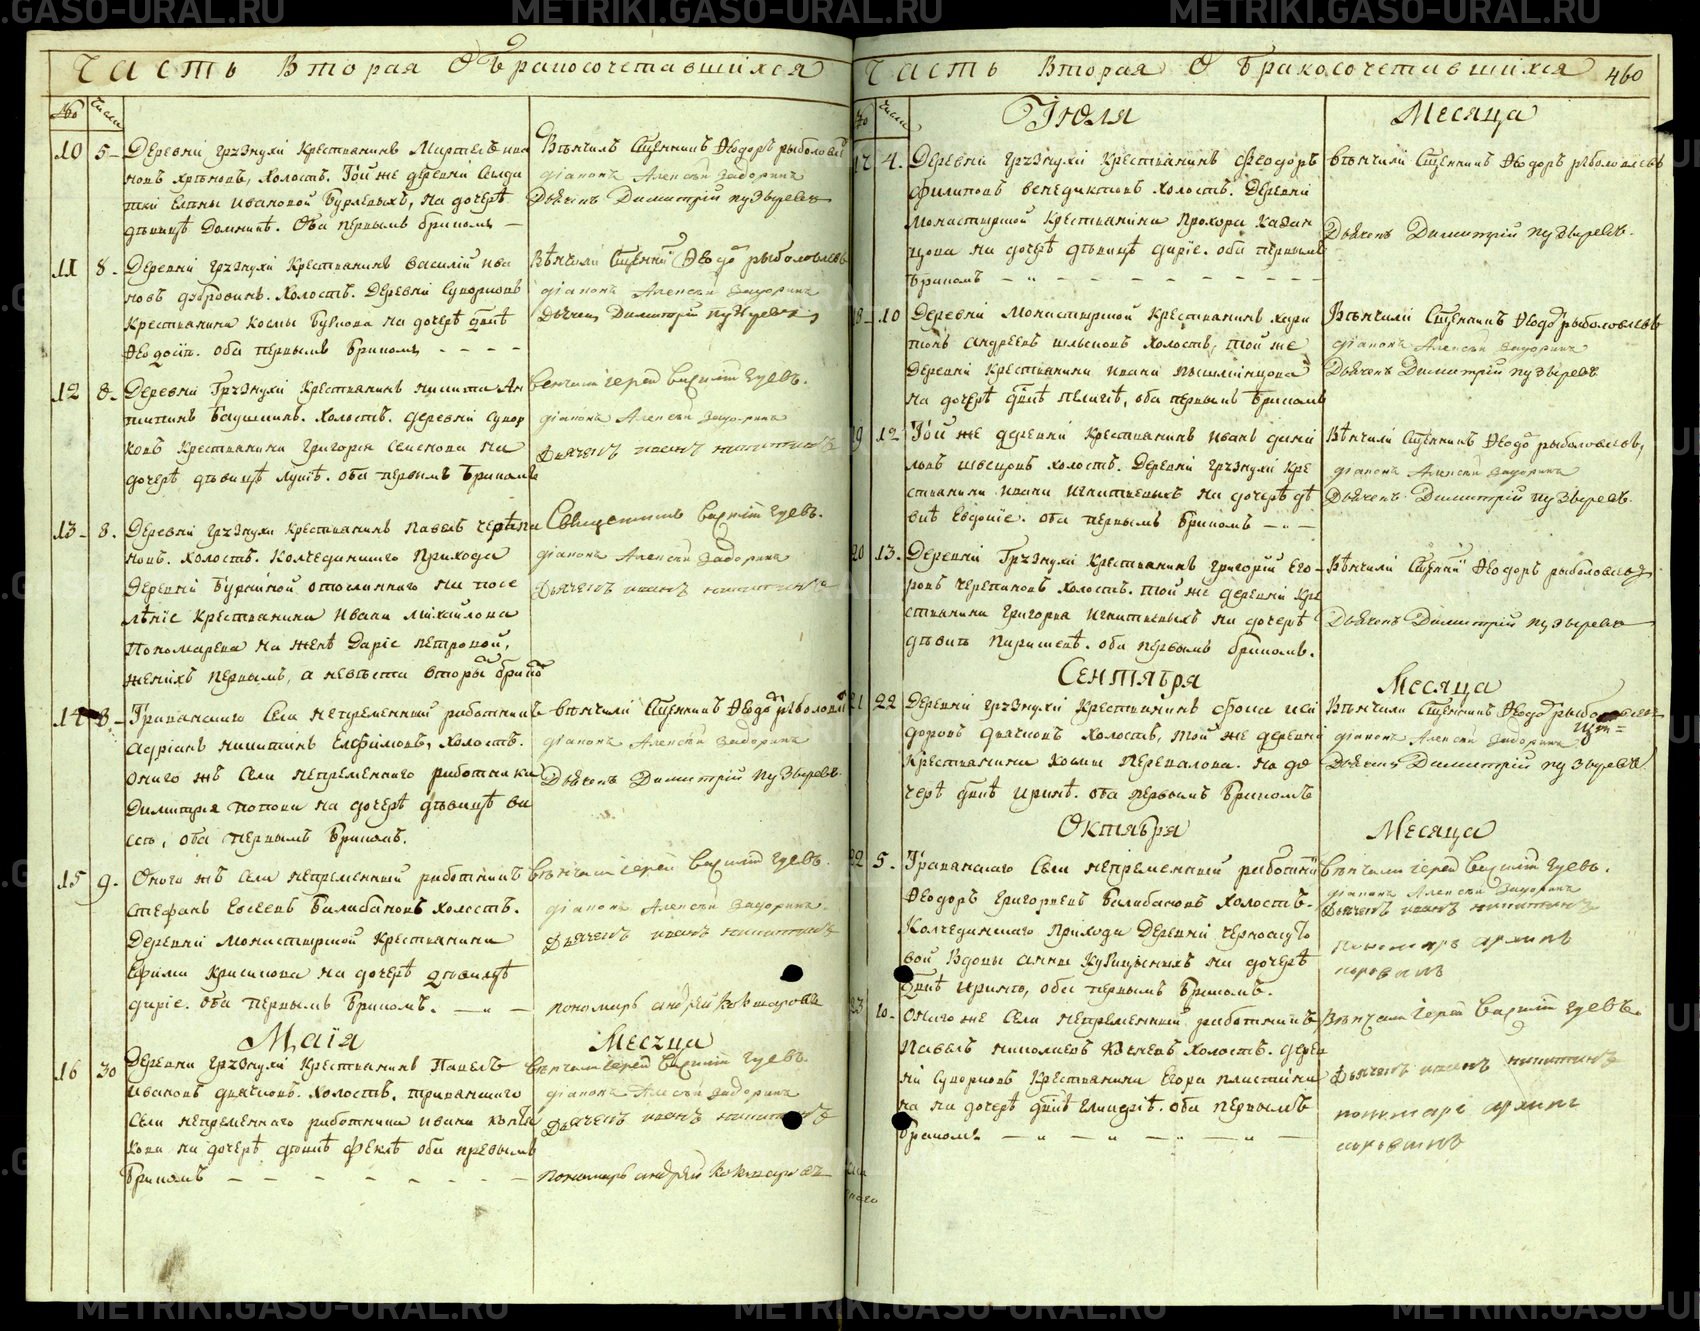 METRIKI.GASO-URAL.RU
METRIKI.GASO-URAL.RU
Часть Вторая О Бракосочетавшихся
№
Числа
10
5
Деревни Грязнухи Крестьянинъ
новъ холостъ. Той же деревни
Елены Ивановой на дочерѣ
дѣвицѣ Домнинѣ. Оба первымъ бракомъ
Вѣнчилъ Сщенникъ Ѳеодоръ Рыболовлевъ
діаконъ Алексѣй Задоринъ
Дьячекъ Димитрій Пузыревъ
11
8
Деревни Грязнухи Крестьянинъ Василій Ива
новъ Дубровинъ. Холостъ. Деревни
Крестьянина Космы на дочерѣ дѣвцѣ
Ѳеодосіи. оба первымъ бракомъ
Вѣнчили Сщенникъ Ѳеодоръ Рыболовлевъ
діаконъ Алексѣй Задоринъ
Дьячекъ Димитрій Пузыревъ
12
8
Деревни Грязнухи Крестьянинъ Никита Ан
холостъ. деревни
Крестьянина Григорья Семенова на
дочерѣ дѣвицѣ оба первымъ бракомъ
Венчали іерей Василій Гуевъ.
діаконъ Алексѣй Задоринъ
Дьячекъ Иванъ Никитинъ
13
8
Деревни Грязнухи Крестьянинъ Павелъ
новъ. Холостъ. Колчеданскаго Прихода
Деревни отосланнаго на посе
лѣніе Крестьянина Ивана Михайлова
Пономарева на женѣ Даріе Петровой,
женихъ первымъ, а невѣста вторымъ бракомъ
Священникъ Василій Гуевъ.
діаконъ Алексѣй Задоринъ
Дьячекъ Иванъ Никитинъ
14
8
Травянскаго Села непременный работникъ
Адріанъ Никитинъ Елфимовъ, Холостъ.
Онаго жъ Села непременнаго работника
Димитрія Попова на дочерѣ дѣвицѣ Ва
ссѣ, оба первымъ бракомъ.
Вѣнчали Сщенникъ Ѳеодоръ Рыболовлевъ
діаконъ Алексѣй Задоринъ
Дьячекъ Димитрій Пузыревъ
15
9
Онаго жъ Села непременный работникъ
Стефанъ Евсеевъ Балибановъ Холостъ.
Деревни Монастырской Крестьянина
Ефима на дочерѣ дѣвицѣ
Даріе. оба первымъ бракомъ.
Вѣнчали іерей Василій Гуевъ.
діаконъ Алексѣй Задоринъ
Дьячекъ Иванъ Никитинъ
пономарь Андрей Кокшаровъ
Маія
Месяца
16
30
Деревни Грязнухи Крестьянинъ Павелъ
Ивановъ Дьячковъ. Холостъ. Травянскаго
Села непременнаго работника Ивана
кова на дочерѣ дѣвцѣ Феклѣ оба первымъ
бракомъ
Вѣнчали іерей Василій Гуевъ.
діаконъ Алексѣй Задоринъ
Дьячекъ Иванъ Никитинъ
пономарь Андрей Кокшаровъ
Часть Вторая О Бракосочетавшихся
460
№
Числа
Іюля
Месяца
17
4.
Деревни Грязнухи Крестьянинъ Феодоръ
Филиповъ Венедиктовъ Холостъ. Деревни
Монастырской Крестьянина Прохора Казан
цова на дочерѣ дѣвицѣ Даріе. оба первымъ
бракомъ
Вѣнчали Сщенникъ Ѳеодоръ Рыболовлевъ
Дьячекъ Димитрій Пузыревъ.
18
10
Деревни Монастырской Крестьянинъ Хари
тонъ Андреевъ холостъ, той же
Деревни Крестьянина Ивана Пышминцова
на дочерѣ дѣвцѣ Пелагіѣ, оба первымъ бракомъ
Вѣнчали Сщенникъ Ѳеодоръ Рыболовлевъ
діаконъ Алексѣй Задоринъ
Дьячекъ Димитрій Пузыревъ
19
12
Той же деревни Крестьянинъ Иванъ Дани
ловъ Швецовъ холостъ. Деревни Грязнухи Кре
стьянина Ивана Игнатьевыхъ на дочерѣ дѣ
вцѣ Евдокіе. оба первымъ бракомъ
Вѣнчали Сщенникъ Ѳеодоръ Рыболовлевъ,
діаконъ Алексѣй Задоринъ
Дьячекъ Димитрій Пузыревъ.
20
13.
Деревни Грязнухи Крестьянинъ Григорій Его
ровъ Черепановъ Холостъ. той же деревни Кре
стьянина Григорья Игнатьевыхъ на дочерѣ
дѣвицѣ оба первымъ бракомъ.
Вѣнчали Сщенникъ Ѳеодоръ Рыболовлевъ
Дьячекъ Димитрій Пузыревъ
Сентября
Месяца
21
22
Деревни Грязнухи Крестьянинъ Фома Иси
доровъ Дьячковъ Холостъ, той же деревни
Крестьянина Космы Перевалова. на до
черѣ дѣвцѣ Иринѣ. оба первымъ бракомъ
Вѣнчали Сщенникъ Ѳеодоръ Рыболовлевъ
діаконъ Алексѣй Задоринъ
Дьячекъ Димитрій Пузыревъ
Октября
Месяца
22
5.
Травянскаго Села непременный работникъ
Ѳеодоръ Григорьевъ Балибановъ Холостъ.
Колчеданскаго Прихода Деревни Черноскуто
вой Вдовы Анны на дочерѣ
дѣвцѣ Ириною, оба первымъ бракомъ.
Вѣнчали іерей Василій Гуевъ.
діаконъ Алексѣй Задоринъ
Дьячекъ Иванъ Никитинъ
пономарь
23
10.
Онаго же Села непременный работникъ
Павелъ Николаевъ Холостъ. дерев
ни Крестьянина Егора Пластини
на на дочерѣ дѣвцѣ Гликеріѣ. оба первымъ
бракомъ
Вѣнчали іерей Василій Гуевъ.
Дьячекъ Иванъ Никитинъ
пономарь
METRIKI.GASO-URAL.RU
METRIKI.GASO-URAL.RU